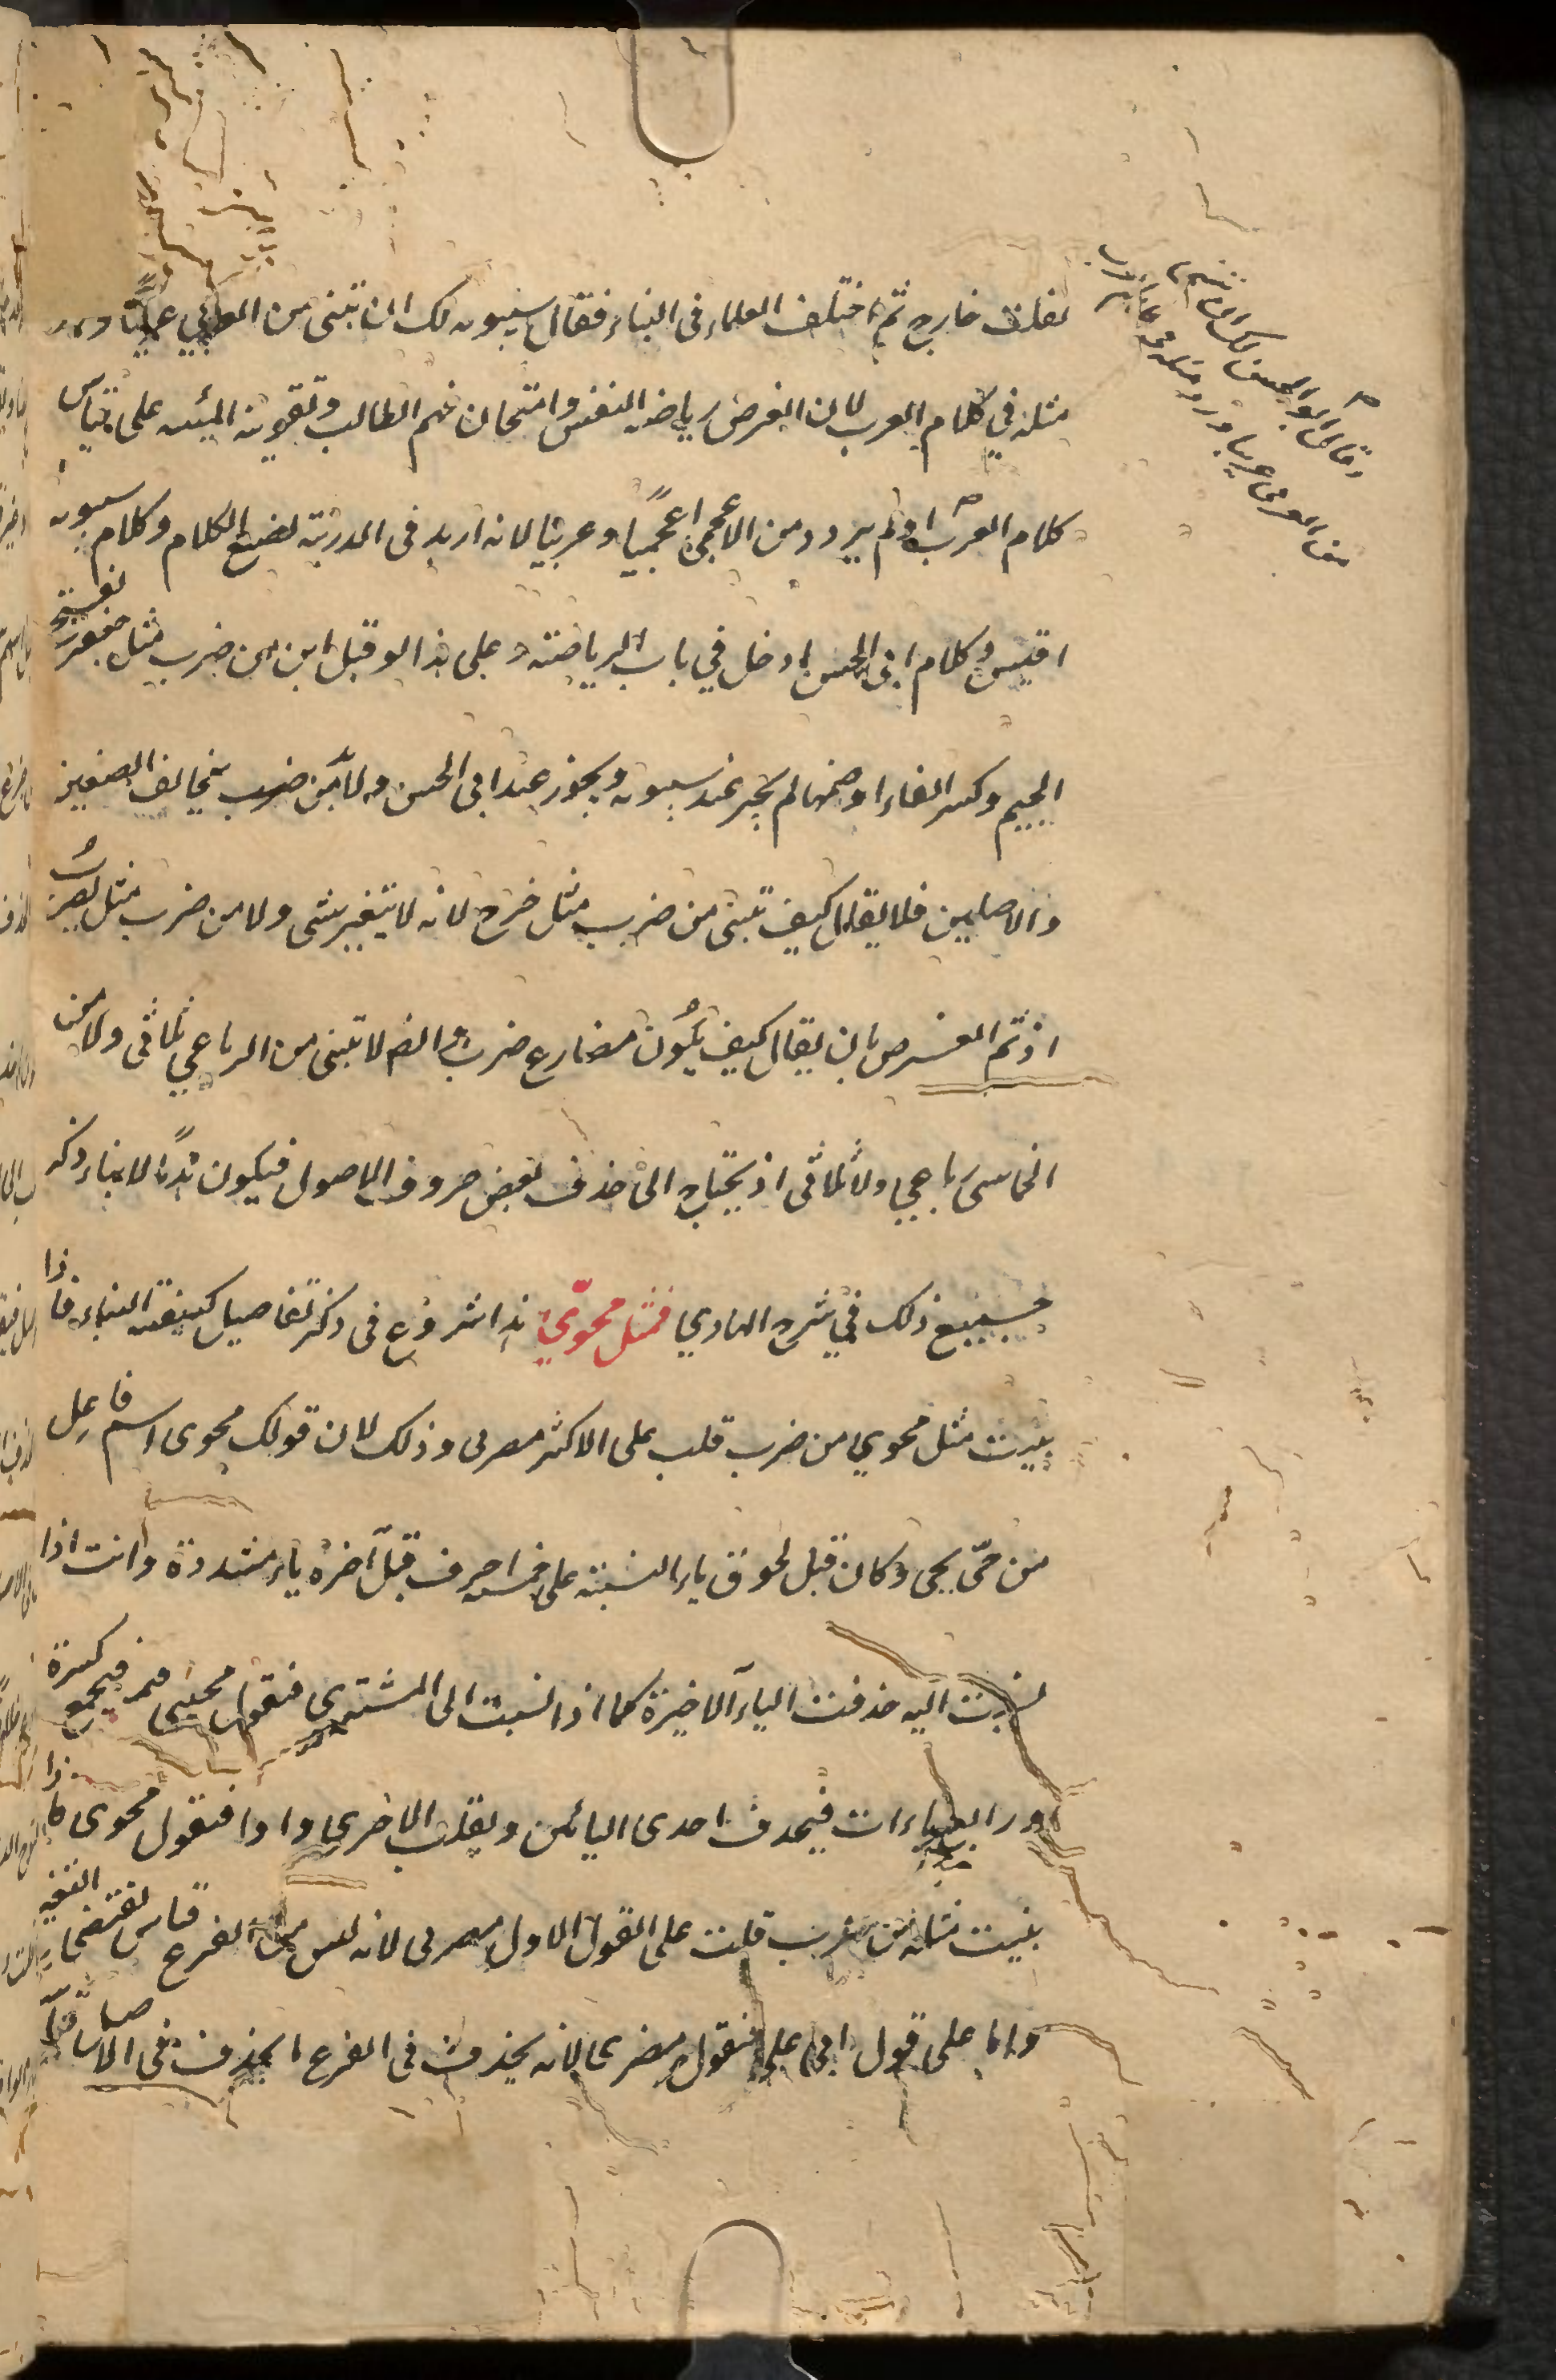 فقلت خارج ثم اختلف العلماء فى البناء فقال سيبويه لك ان تبنى من العربي عربيا ورد
مثله في كلام العرب لان الغرض رياضة النفس وامتحان فهم الطالب وتقوية المنة على قياس
كلام العرب اولم يرد ومن الاعجمى اعجميا وعربيا لانه اريد فى الدربة لصيغ الكلام وكلام سيبويه
اقيس وكلام ابى الحسن ادخل في باب الرياضة وعلى هذا لو قيل ابن من ضرب مثل جعفر بفتح
الجيم وكسر الفاء او ضمها لم يجز عند سيبويه ويجوز عند ابى الحسن ولا من ضرب يخالف الصغيرين
والاصلين فلا يقال كيف تبنى من ضرب مثل خرج لانه لا يتغير شى ولا من ضرب مثل يضرب
اذ تم الغرض بان يقال كيف يكون مضارع ضرب وايضا لا تبنى من الرباعي ثلاثى ولا من
الخماسى رباعي ولا ثلاثى اذ يحتاج الى حذف بعض حروف الاصول فيكون هدما لا بناء ذكر
جميع ذلك في شرح الهادي فمثل محوي هذا شروع فى ذكر تفاصيل كيفية البناء فاذا
بنيت مثل محوي من ضرب قلت على الاكثر مضربى وذلك لان قولك محوى اسم فاعل
من حيى يحيى وكان قبل لحوق ياء النسبة على خمسة احرف قبل آخره ياء مشددة وانت اذا
نسبت اليه حذفت الياء الاخيرة كما اذا نسبت الى المشترى فتقول محيى فيجمع كسرة
واربع ياءات فيحذف احدى اليائين ويقلب الاخرى واوا فتقول محوى فاذا
بنيت مثله من ضرب قلت على القول الاول مضربى لانه ليس فى الفرع قياس يقتضى التغيير
واما على قول ابى على فتقول مضرى لانه يحذف فى الفرع ما يحذف فى الاصل قياسا
وقال ابو الحسن لك ان تبنى
من العربى عربيا ورد مثله فى كلام العرب